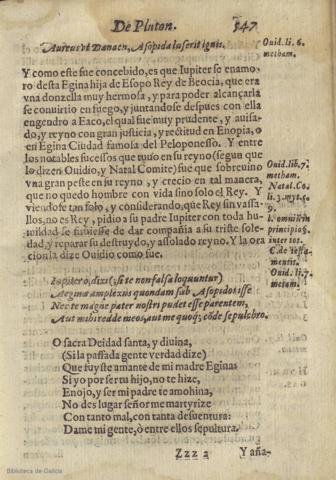 De Pluton. 547
Aureus vt Danaen, Asopida luserit ignis.
Ouid. li. 6.
metham.
Y como este fue concebido, es que Iupiter se enamo-
ro desta Egina hija de Esopo Rey de Beocia, que era
vna donzella muy hermosa, y para poder alcançarla
se conuirtio en fuego, y juntandose despues con ella
engendro a Eaco, el qual fue muy prudente, y auisa-
do, y reyno con gran justicia, y rectitud en Enopia, o
en Egina Ciudad famosa del Peloponesso. Y entre
los notables sucessos que tuuo en su reyno (segun que
lo dizen Ouidio, y Natal Comite) fue que sobreuino
vna gran peste en su reyno, y crecio en tal manera,
que no quedo hombre con vida sino solo el Rey. Y
viendose tan solo, y considerando, que Rey sin vassa-
llos, no es Rey, pidio a su padre Iupiter con toda hu-
mildad se siruiesse de dar compañia a su triste sole-
dad, y reparar su destruydo, y assolado reyno. Y la ora
cion la dize Ouidio como fue.
Ouid. lib. 7.
metham.
Natal. Co.
li. 3. myt. c.
9.
principio
Ouid. li. 7.
metam.
Iupiter ò, dixi (si te non falsa loquuntur)
Aegina amplexus quondam sub Asopidos isse
Nec te magne pater nostri pudet esse parentem,
Aut mihi redde meos, aut me quoq; cōde sepulchro.
O sacra Deidad santa, y diuina,
(Si la passada gente verdad dize)
Que fuyste amante de mi madre Eginas
Si yo por ser tu hijo, no te hize,
Enojo, y ser mi padre te amohina,
No des lugar señor me martyrize
Con tanto mal, con tanta desuentura:
Dame mi gente, ò entre ellos sepultura.
Zzz 2 Y aña-
Biblioteca de Galicia